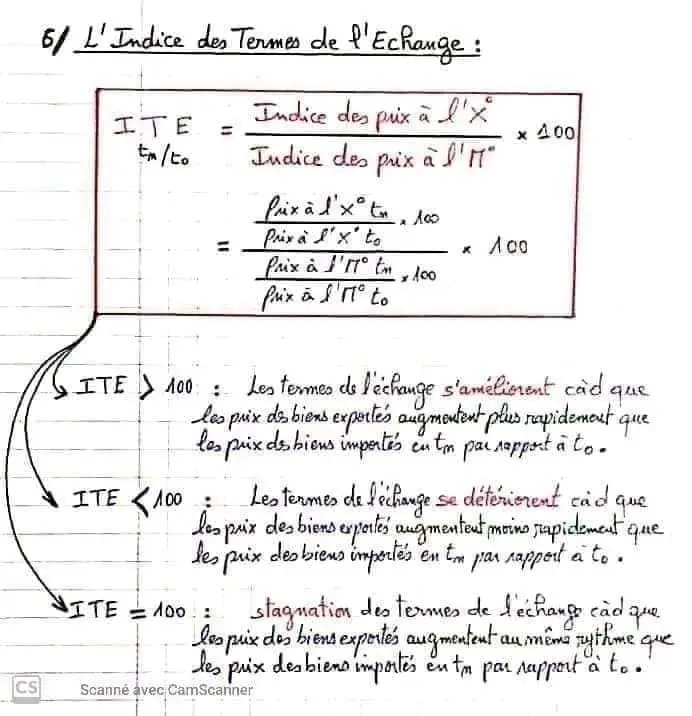 6/ L'Indice des Termes de l'Echange :
ITE tn/to = Indice des prix à l'X° / Indice des prix à l'M° × 100
= (Prix à l'X° tn / Prix à l'X° to × 100) / (Prix à l'M° tn / Prix à l'M° to × 100) × 100
ITE > 100 : Les termes de l'échange s'améliorent càd que
les prix des biens exportés augmentent plus rapidement que
les prix des biens importés en tn par rapport à to.
ITE < 100 : Les termes de l'échange se détériorent càd que
les prix des biens exportés augmentent moins rapidement que
les prix des biens importés en tn par rapport à to.
ITE = 100 : stagnation des termes de l'échange càd que
les prix des biens exportés augmentent au même rythme que
les prix des biens importés en tn par rapport à to.
CS Scanné avec CamScanner